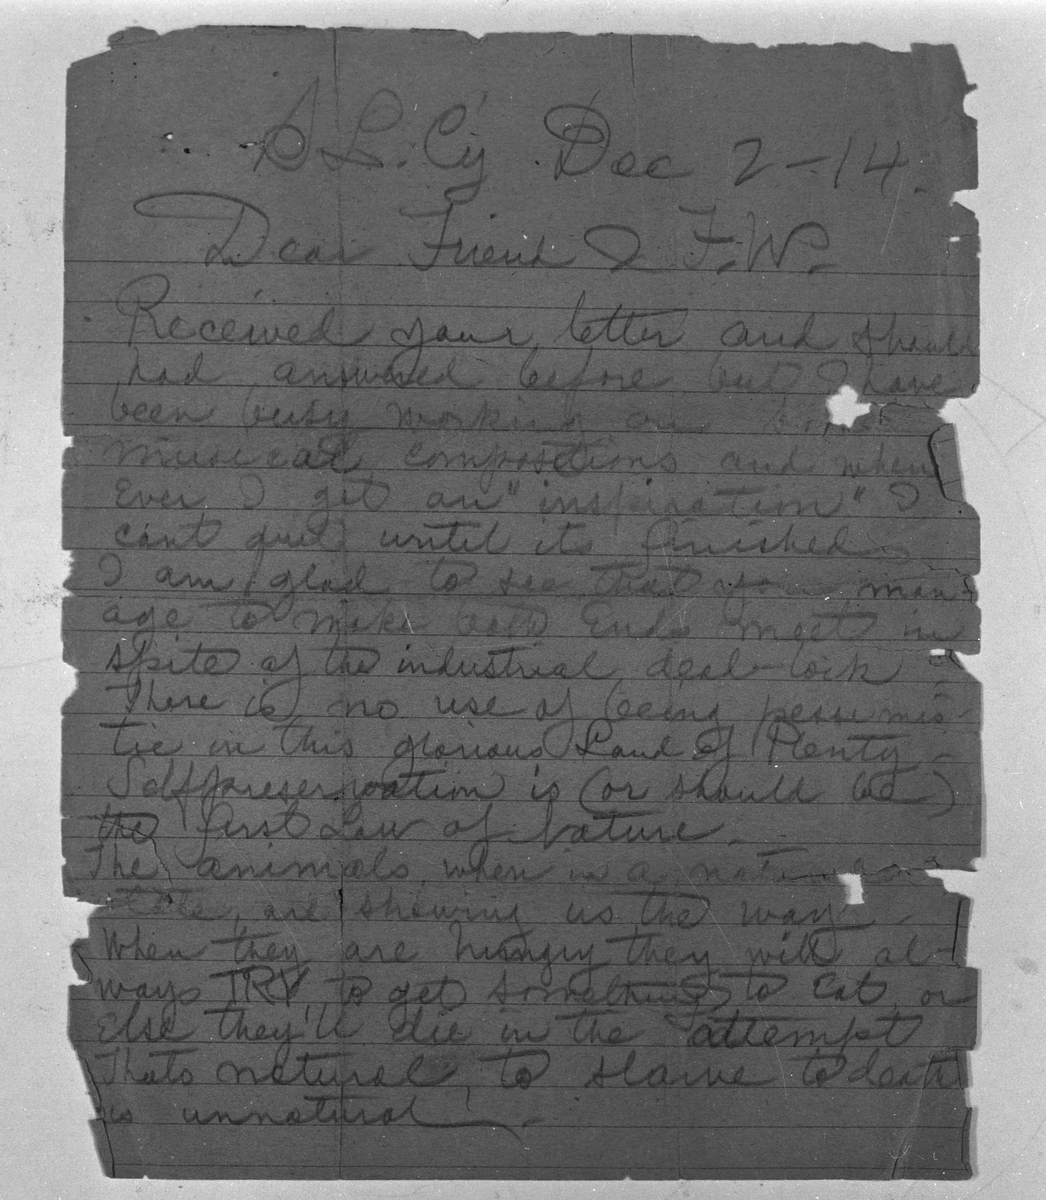 S.L. Cy Dec 2-14.
Dear Friend & F.W.
Received your letter and should
had answered before but I have
been busy working on some
musical compositions and when
Ever I get an "inspiration" I
cant quit until its finished
I am glad to see that you man-
age to make both Ends meet in
spite of the industrial deal-lock
There is no use of being pessimis-
tic in this glorious Land of Plenty
Selfpreservation is (or should be)
the first Law of Nature.
The animals, when in a natural
state, are showing us the way
When they are hungry they will al-
ways TRY to get something to Eat, or
Else they'll die in the attempt
Thats natural, to starve to death
is unnatural